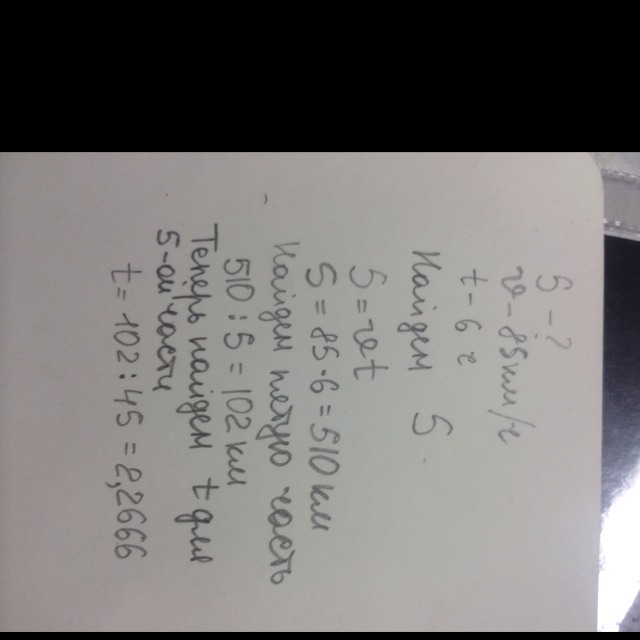 S - ?
v - 85 км/ч
t - 6 ч
Найдем S
S = vt
S = 85 · 6 = 510 км
Найдем пятую часть
510 : 5 = 102 км
Теперь найдем t для
5-ой части
t = 102 : 45 = 2,2666